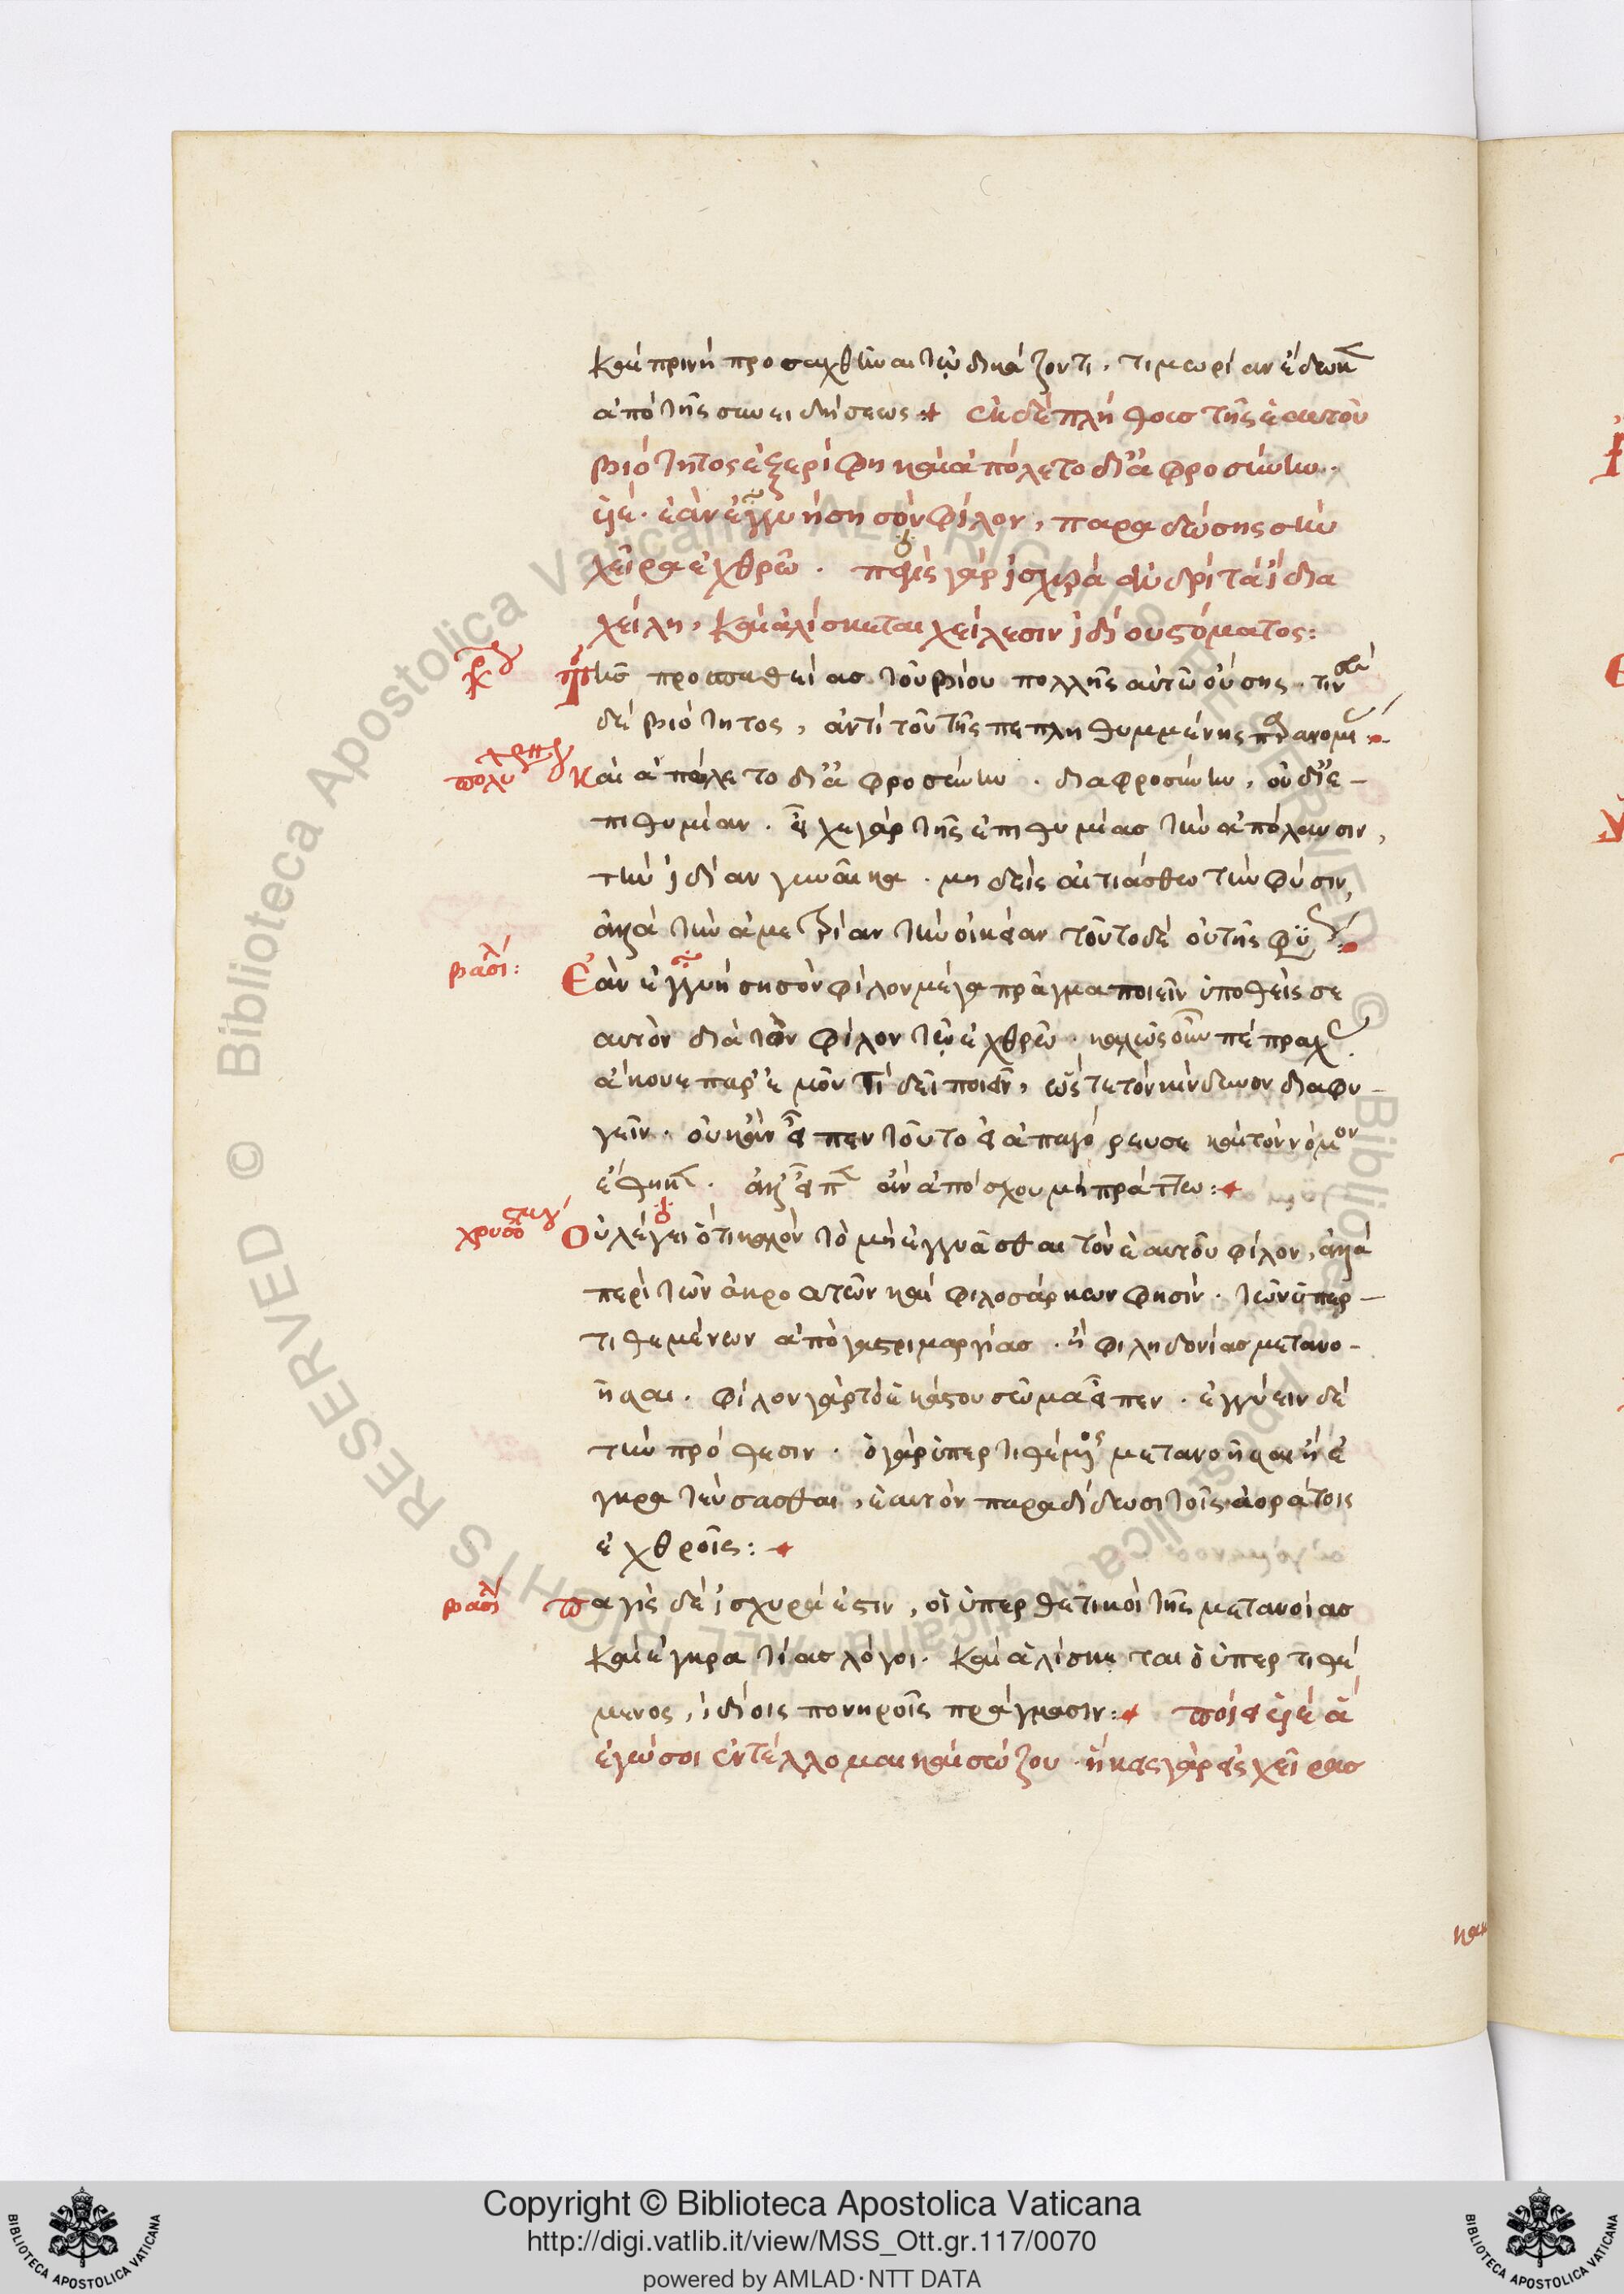 καὶ πρινὴ προσαχθῆναι τῷ δικάζοντι, τιμωρίαν ἔδωκ
ἀπὸ τῆς συνειδήσεως: ἐκ δὲ πλήθους τῆς ἑαυτοῦ
βιότητος ἐξερίφη καὶ ἀπόλετο δι' ἀφροσύνην.
υἱέ. ἐὰν ἐγγυήσῃ σὸν φίλον, παραδώσῃς σὴν
χεῖρα ἐχθρῷ. παγὶς γὰρ ἰσχυρὰ ἀνδρὶ τὰ ἴδια
χείλη, καὶ ἁλίσκεται χείλεσιν ἰδίου στόματος:
τῆς προσπαθείας τοῦ βίου πολλῆς αὐτῷ οὔσης. τινὲς
δὲ βιότητος, ἀντὶ τοῦ τῆς πεπληθυμμένης παρανομί
πολυ
Καὶ ἀπόλετο δι' ἀφροσύνην. δι' ἀφροσύνην, οὐ δι' ἐ-
πιθυμίαν. εἶχε γὰρ τῆς ἐπιθυμίας τὴν ἀπόλαυσιν,
τὴν ἰδίαν γυναῖκα. μηδεὶς αἰτιάσθω τὴν φύσιν,
ἀλλὰ τὴν ἀμετρίαν τὴν οἰκείαν τοῦτο δὲ οὐ τῆς φύ
βασιλ:
Ἐὰν ἐγγυήσῃ σὸν φίλον μέγα πρᾶγμα ποιεῖν ὑποθεὶς σε
αυτὸν διὰ τὸν φίλον τῷ ἐχθρῷ. καλῶς οὖν πέπραχ
ἄκουε παρ' ἐμοῦ τί δεῖ ποιεῖν, ὥστε τὸν κίνδυνον διαφυ-
γεῖν. οὐκ ἂν εἶπεν τοῦτο εἰ ἀπαγόρευσε καὶ τὸν νόμον
ἔθηκ. ἀλλ' εἶπ ἂν ἀπόσχου μὴ πράττω:
χρυσο
Οὐ λέγει ὅτι καλὸν τὸ μὴ ἐγγυᾶσθαι τὸν ἑαυτοῦ φίλον, ἀλλὰ
περὶ τῶν ἀκροατῶν καὶ φιλοσάρκων φησίν. τῶν ὑπερ-
τιθεμένων ἀπὸ γαστριμαργίας. ἢ φιληδονίας μετανο-
ῆσαι. φίλον γὰρ τὸ ἑκάστου σῶμα εἶπεν. ἐγγύειν δὲ
τὴν πρόθεσιν. ὁ γὰρ ὑπερτιθέμενος μετανοῆσαι ἢ ἐ
γκρατεύσασθαι, ἑαυτὸν παραδίδωσι τοῖς ἀοράτοις
ἐχθροῖς:
βασιλ
παγὶς δὲ ἰσχυρά ἐστιν, οἱ ὑπερθετικοὶ τῆς μετανοίας
καὶ ἐγκρατίας λόγοι. καὶ ἁλίσκεται ὁ ὑπερτιθέ
μενος, ἰδίοις πονηροῖς πράγμασιν: ποίει υἱέ ἃ
ἐγώ σοι ἐντέλλομαι καὶ σώζου. ἥκεις γὰρ εἰς χεῖρας
Copyright © Biblioteca Apostolica Vaticana
http://digi.vatlib.it/view/MSS_Ott.gr.117/0070
powered by AMLAD·NTT DATA
BIBLIOTECA APOSTOLICA VATICANA
BIBLIOTECA APOSTOLICA VATICANA